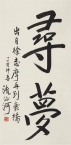 尋夢
出自徐志摩再別康橋